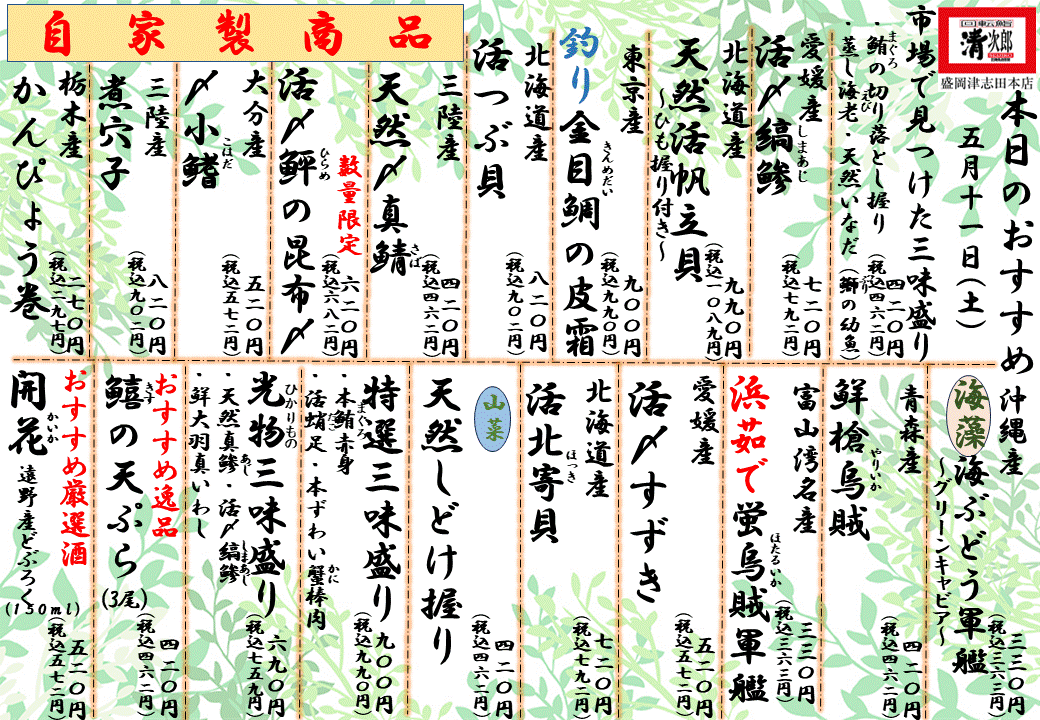 回転鮨
清次郎
盛岡津志田本店
本日のおすすめ
五月十一日(土)
市場で見つけた三味盛り
・鮪の切り落とし握り
まぐろ
・蒸し海老・天然いなだ(鰤の幼魚)
えび
ぶり
四二〇円
(税込四六二円)
愛媛産
活〆縞鯵
しまあじ
七二〇円
(税込七九二円)
北海道産
天然活帆立貝
〜ひも握り付き〜
九九〇円
(税込一〇八九円)
東京産
釣り金目鯛の皮霜
きんめだい
九〇〇円
(税込九九〇円)
北海道産
活つぶ貝
八二〇円
(税込九〇二円)
三陸産
天然〆真鯖
さば
四二〇円
(税込四六二円)
自家製商品
数量限定
活〆鮃の昆布〆
ひらめ
六二〇円
(税込六八二円)
大分産
〆小鰭
こはだ
五二〇円
(税込五七二円)
三陸産
煮穴子
八二〇円
(税込九〇二円)
栃木産
かんぴょう巻
二七〇円
(税込二九七円)
沖縄産
海藻
海ぶどう軍艦
〜グリーンキャビア〜
三三〇円
(税込三六三円)
青森産
鮮槍烏賊
やりいか
四二〇円
(税込四六二円)
富山湾名産
浜茹で蛍烏賊軍艦
ほたるいか
三三〇円
(税込三六三円)
愛媛産
活〆すずき
五二〇円
(税込五七二円)
北海道産
活北寄貝
ほっき
七二〇円
(税込七九二円)
山菜
天然しどけ握り
四二〇円
(税込四六二円)
特選三味盛り
・本鮪赤身
まぐろ
・活蛸足・本ずわい蟹棒肉
たこ
かに
九〇〇円
(税込九九〇円)
光物三味盛り
ひかりもの
・天然真鯵・活〆縞鯵
あじ
しまあじ
・鮮大羽真いわし
六九〇円
(税込七五九円)
おすすめ逸品
鱚の天ぷら(3尾)
きす
四二〇円
(税込四六二円)
おすすめ厳選酒
開花
かいか
遠野産どぶろく
(150ml)
五二〇円
(税込五七二円)